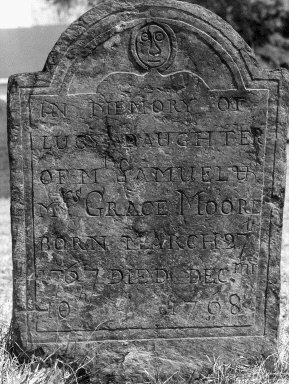 IN MEMORY OF
LUCY DAUGHTE
OF Mr SAMUEL &
Mrs GRACE MOORE
BORN MARCH 27th
1767 DIED DECmr
10 1768